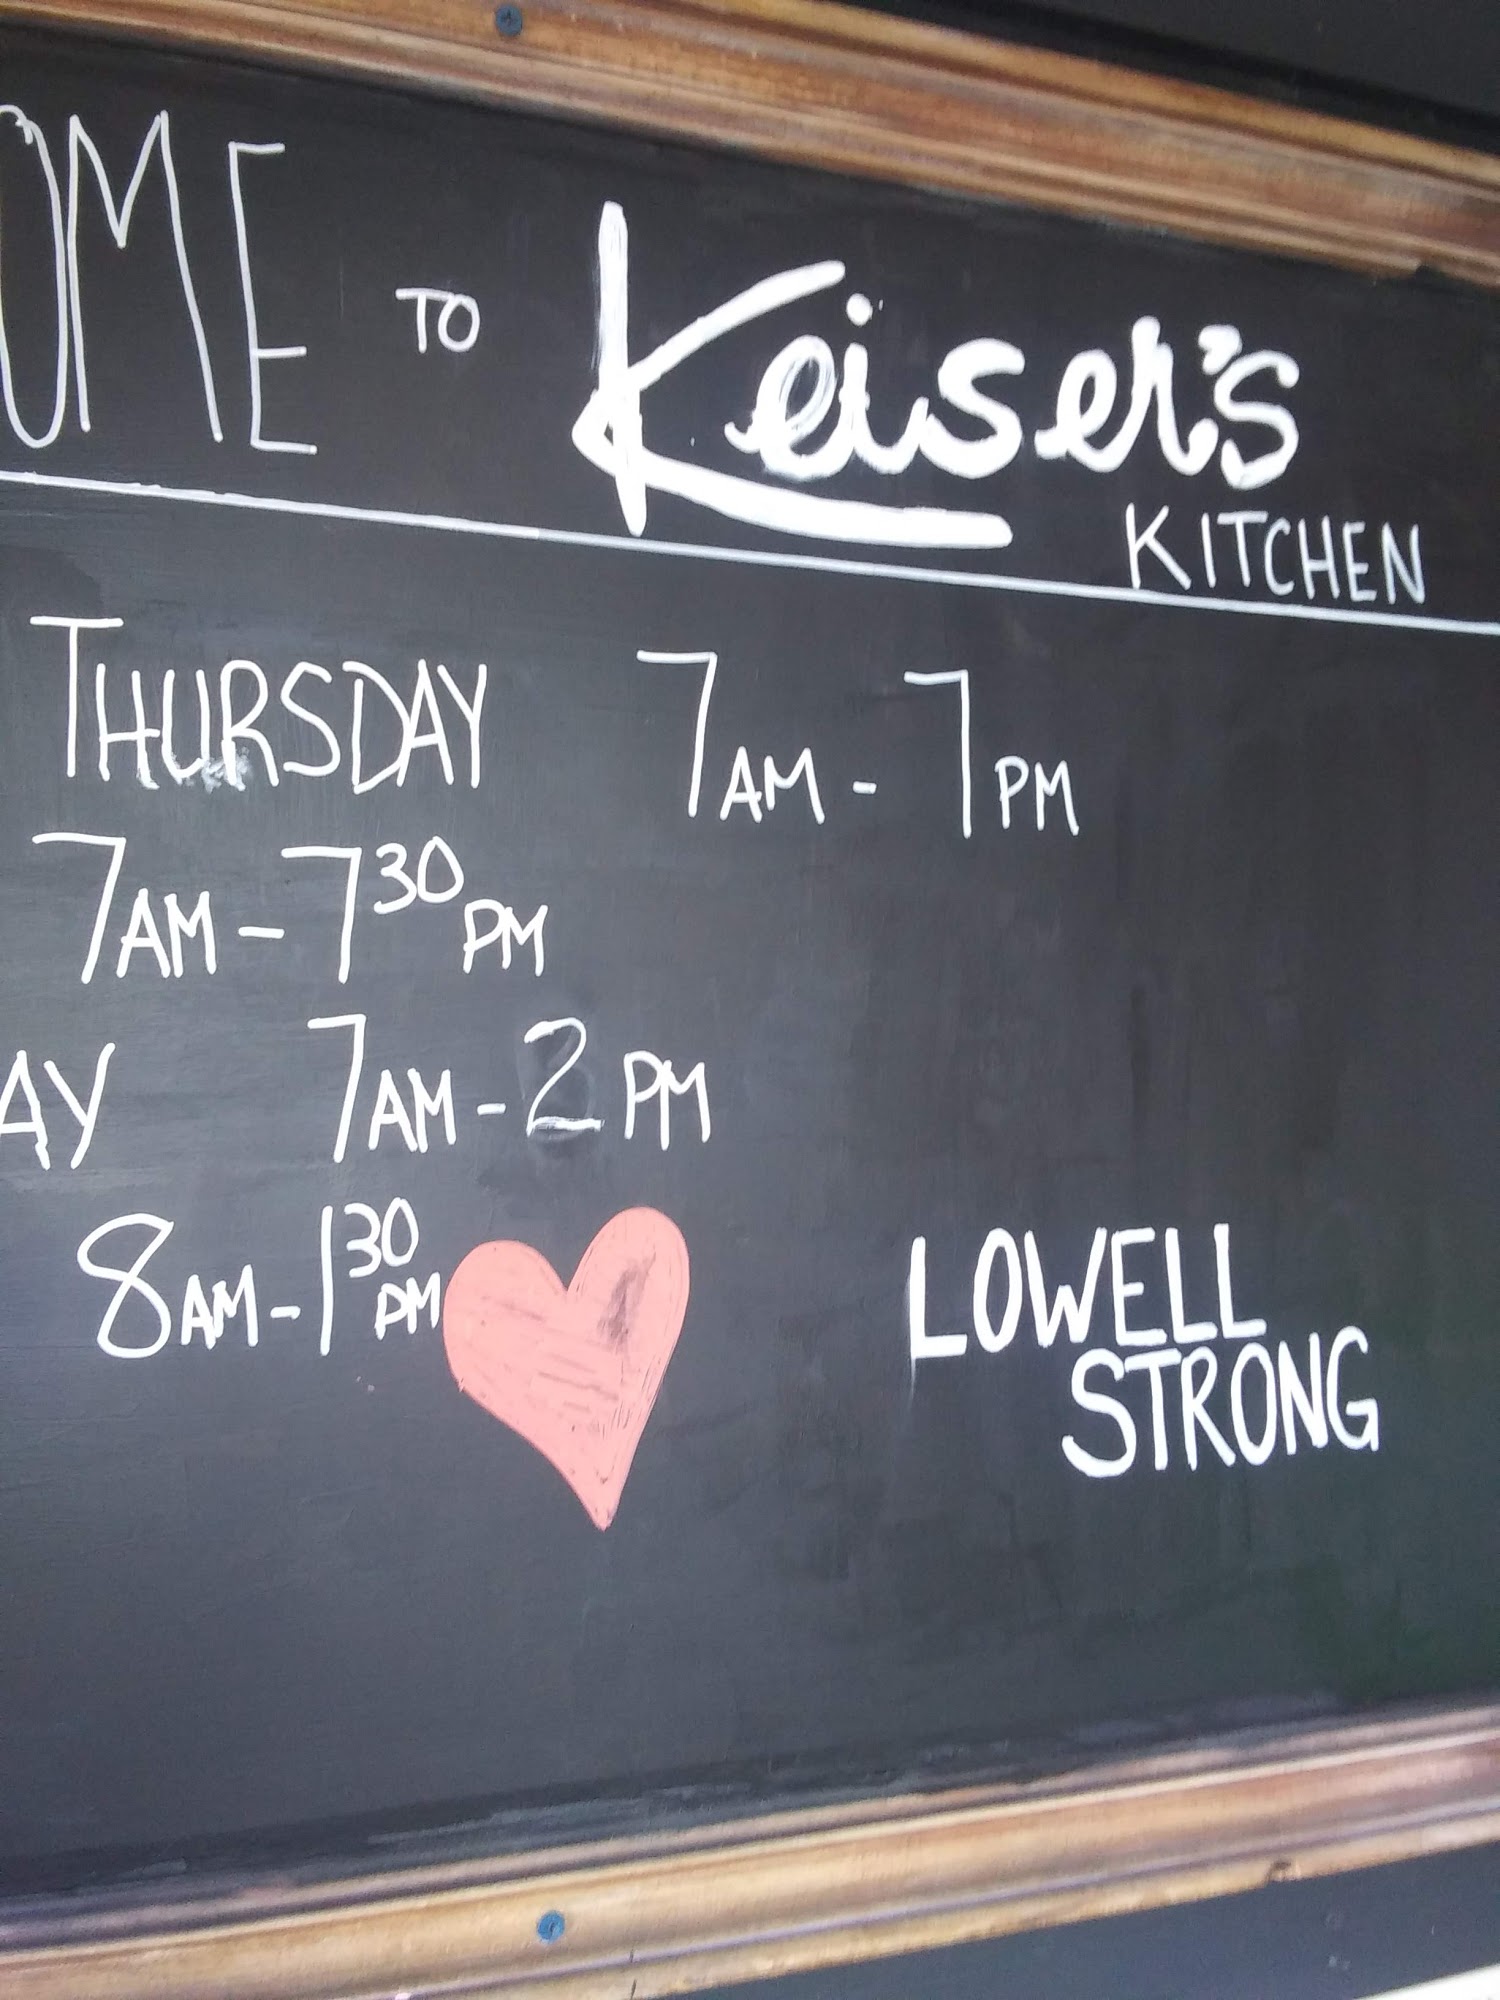 OME TO Keiser's
KITCHEN
THURSDAY 7AM - 7PM
7AM - 7³⁰ PM
AY 7AM - 2 PM
8AM - 1³⁰ PM
LOWELL
STRONG